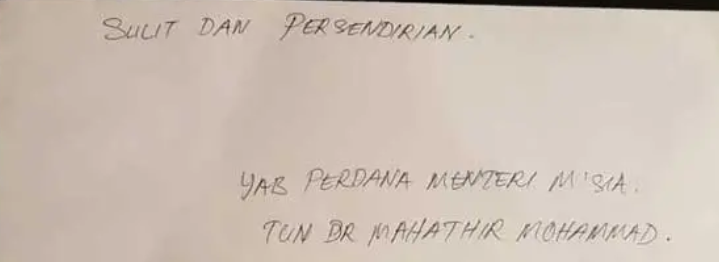 SULIT DAN PERSENDIRIAN.
YAB PERDANA MENTERI M'SIA.
TUN DR MAHATHIR MOHAMMAD.